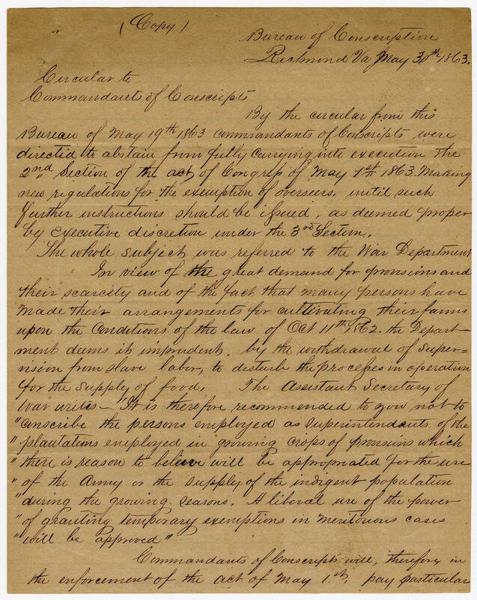 (Copy)
Bureau of Conscription
Richmond Va May 30th 1863.
Circular to
Commandants of Conscripts
By the circular from this
Bureau of May 19th 1863 Commandants of Conscripts were
directed to abstain from fully carrying into execution the
2nd Section of the act of Congress of May 1st 1863. Making
new regulations for the exemption of overseers, until such
further instructions should be issued, as deemed proper
by Executive discretion under the 3rd Section.
The whole subject was referred to the War Department
In view of the great demand for provisions and
their scarcity and of the fact that many persons have
made their arrangements for cultivating their farms
upon the Conditions of the law of Oct 11th 1862. the Depart-
ment deems it imprudent, by the withdrawal of Super-
vision from slave labor, to disturb the process in operation
for the supply of food. The Assistant Secretary of
War writes - "It is therefore recommended to you not to
"conscribe the persons employed as Superintendents of the
"plantations employed in growing crops of provisions which
"there is reason to believe will be appropriated for the use
"of the Army or the supply of the indigent population
"during the growing seasons. A liberal use of the power
"of granting temporary exemptions in meritorious cases
"will be approved"
Commandants of Conscripts will, therefore, in
the enforcement of the act of May 1st, pay particular